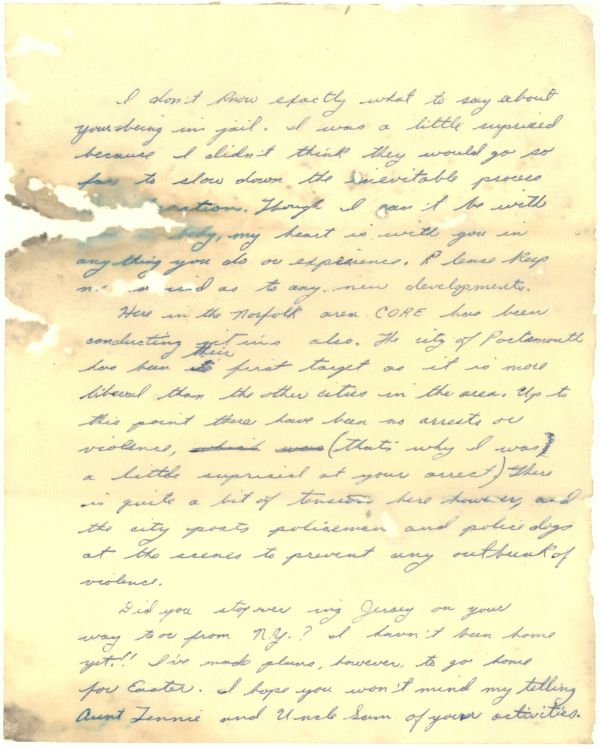 I don't know exactly what to say about
your being in jail. I was a little suprised
because I didn't think they would go so
far to slow down the inevitable process
Though I can't be with
body, my heart is with you in
anything you do or experience. Please keep
as to any new developments.
Here in the Norfolk area CORE has been
conducting sit ins also. The city of Portsmouth
has been their first target as it is more
liberal than the other cities in the area. Up to
this point there have been no arrests or
violence, which was (that's why I was)
a little suprised at your arrest) There
is quite a bit of tension here however, and
the city posts policemen and police dogs
at the scenes to prevent any outbreak of
violence.
Did you stop over ing Jersey on your
way to or from N.Y.? I havn't been home
yet!! I've made plans, however, to go home
for Easter. I hope you won't mind my telling
Aunt Tennie and Uncle Sam of your activities.